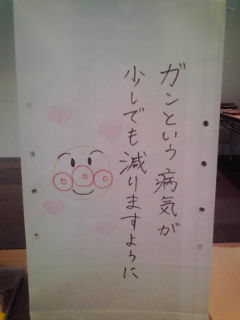 ガンという病気が
少しでも減りますように